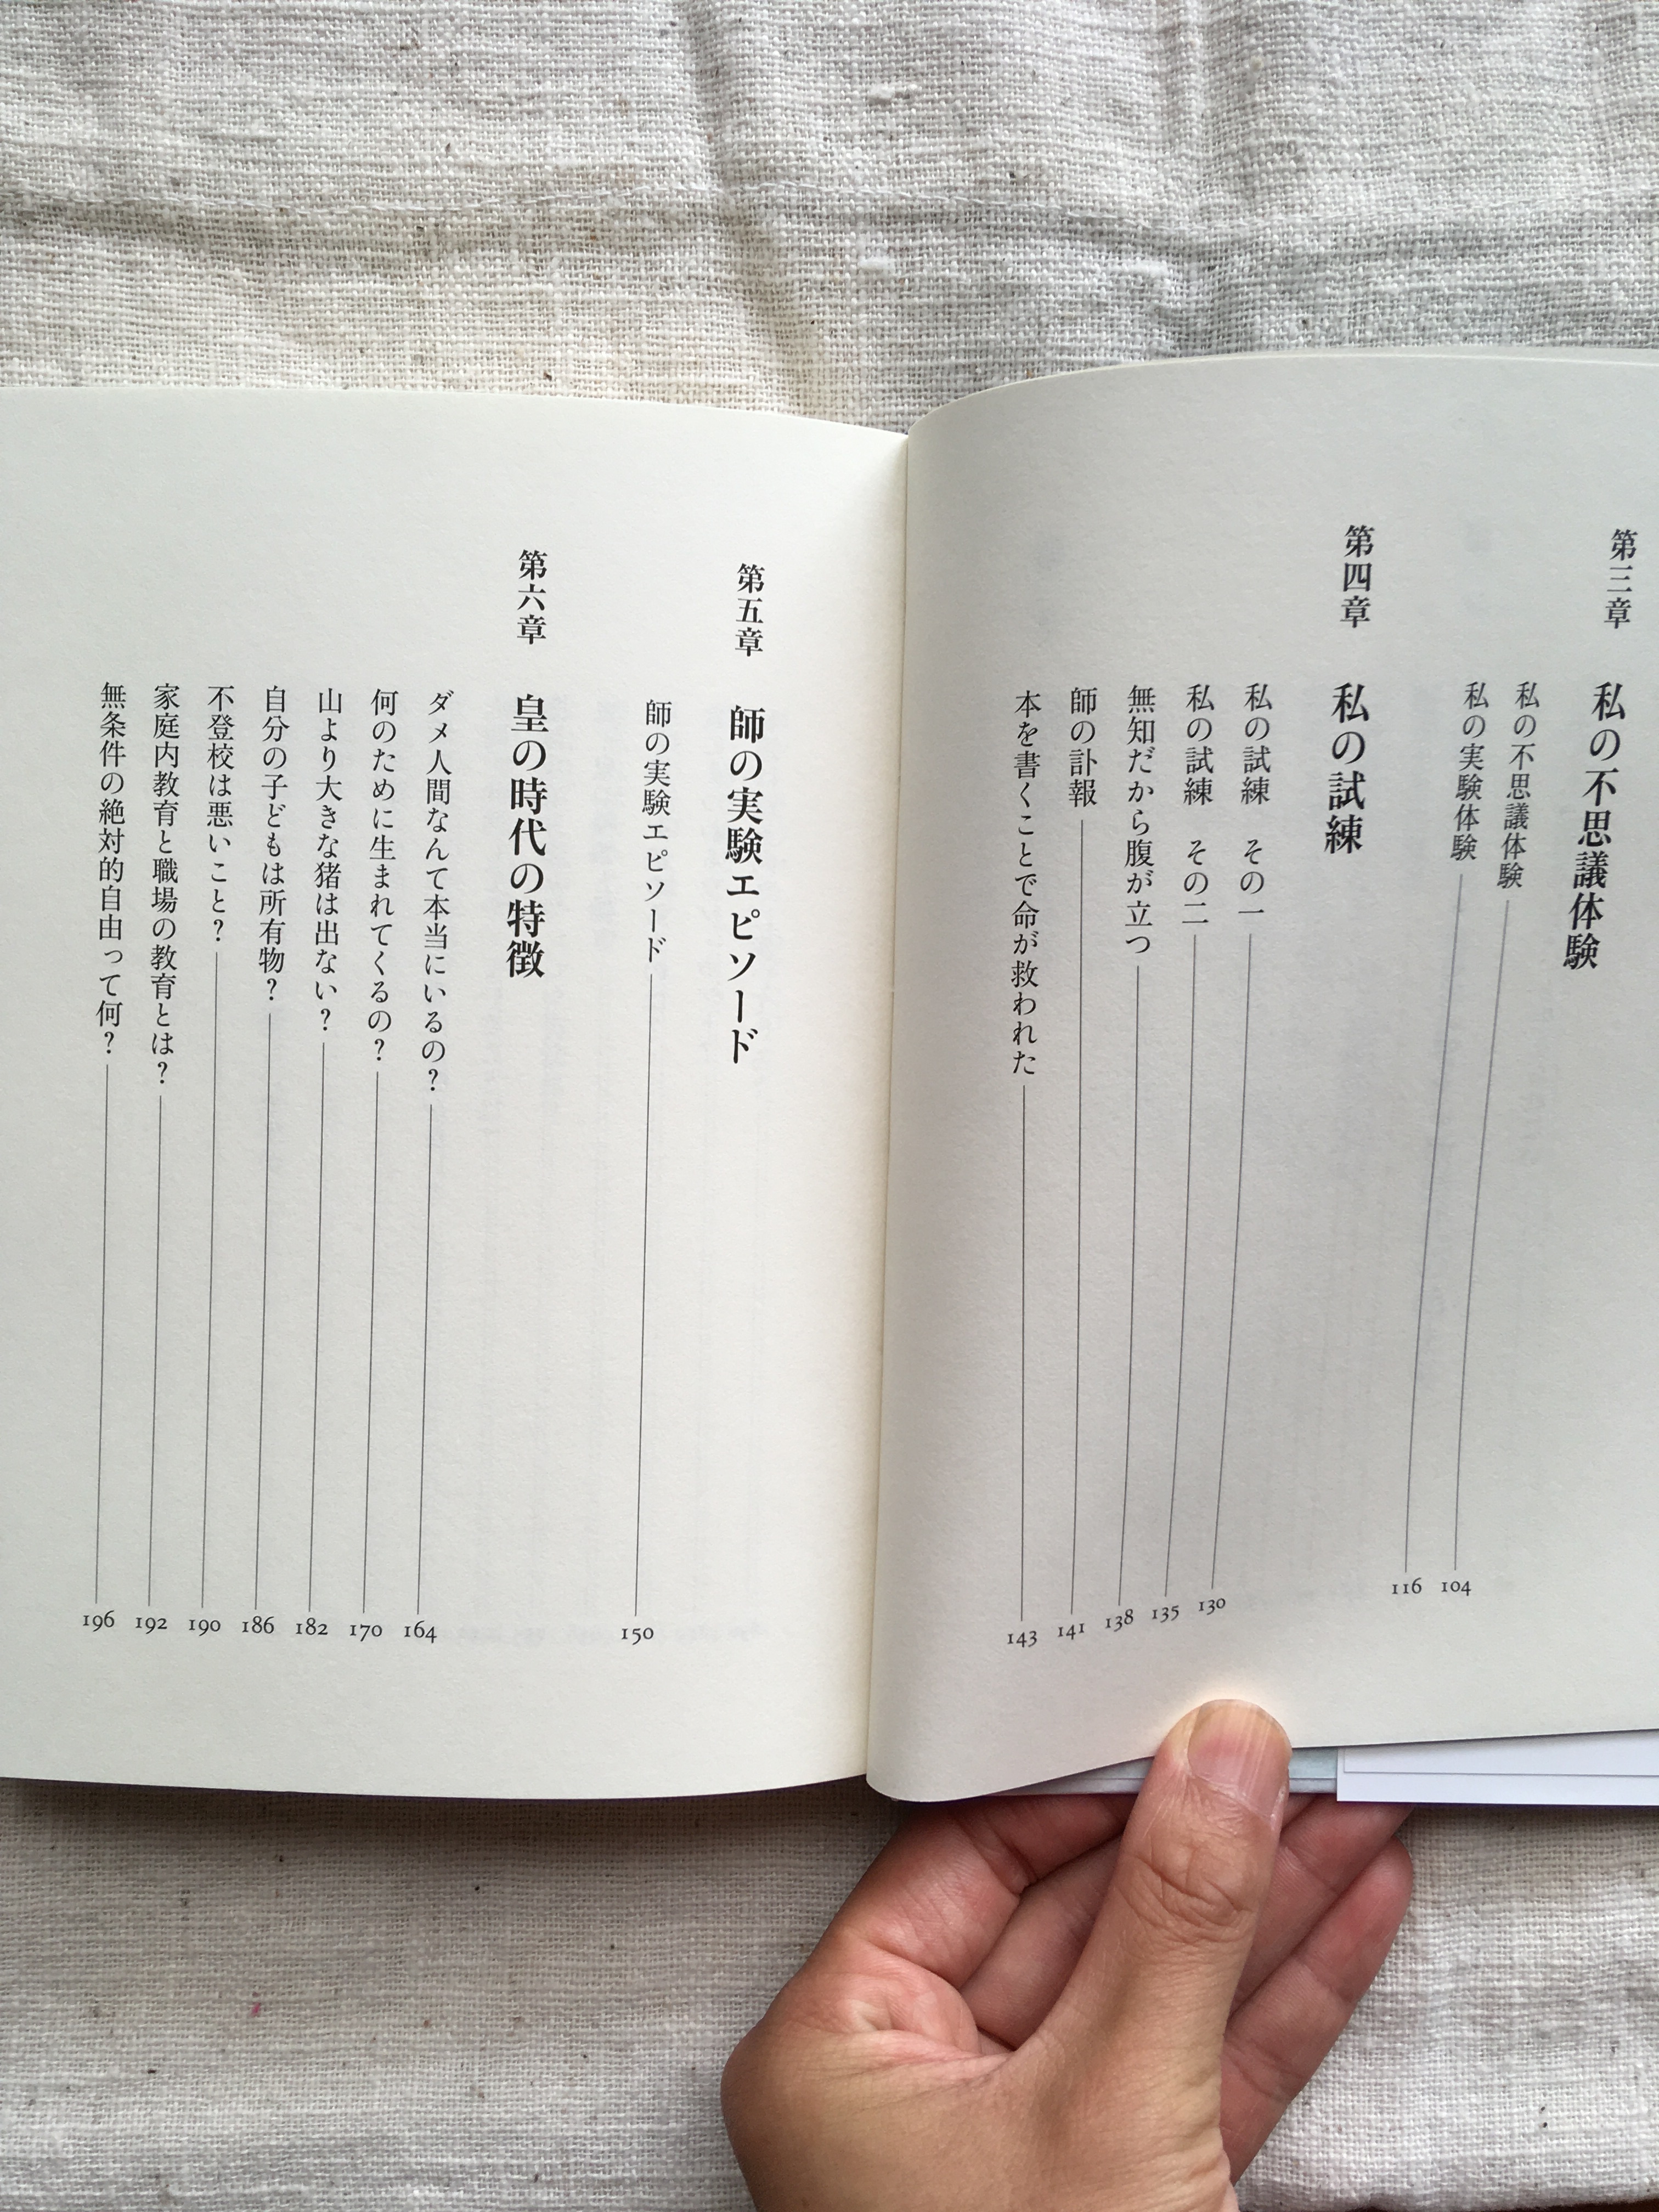 第三章　私の不思議体験
私の不思議体験 104
私の実験体験 116
第四章　私の試練
私の試練　その一 130
私の試練　その二 135
無知だから腹が立つ 138
師の訃報 141
本を書くことで命が救われた 143
第五章　師の実験エピソード
師の実験エピソード 150
第六章　皇の時代の特徴
ダメ人間なんて本当にいるの？ 164
何のために生まれてくるの？ 170
山より大きな猪は出ない？ 182
自分の子どもは所有物？ 186
不登校は悪いこと？ 190
家庭内教育と職場の教育とは？ 192
無条件の絶対的自由って何？ 196